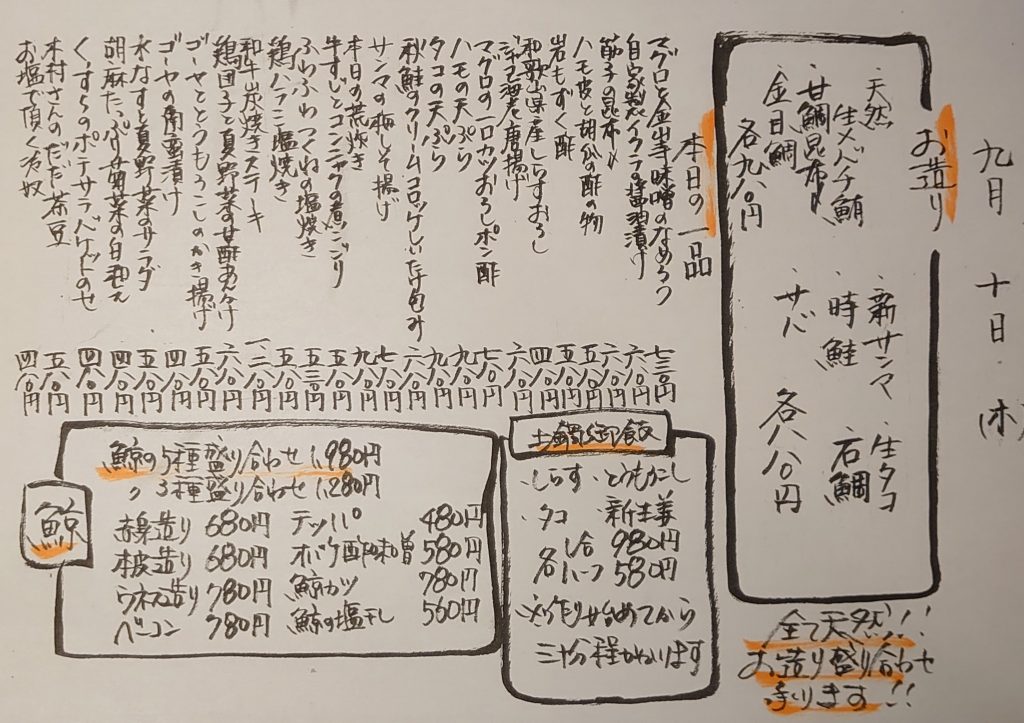 九月 十日
お造り
・天然
生メバチ鮪
・甘鯛昆布〆
・金目鯛
各九八〇円
・新サンマ ・生タコ
・時鮭 ・石鯛
・サバ
各八八〇円
全て天然!!
お造り盛り合わせ
承ります!!
本日の一品
マグロと金山寺味噌のなめろう 七三〇円
自家製イクラの醤油漬け 六八〇円
筋子の昆布〆 六八〇円
ハモ皮と胡瓜の酢の物 五八〇円
岩もずく酢 四八〇円
和歌山県産しらすおろし 六八〇円
海老唐揚げ 七八〇円
マグロの一口カツおろしポン酢 九八〇円
ハモの天ぷら 九八〇円
タコの天ぷら 九八〇円
秋鮭のクリームコロッケしいたけ包み 六八〇円
サンマの梅しそ揚げ 七八〇円
本日の荒炊き 九八〇円
牛すじとコンニャクの煮こごり 五八〇円
ふわふわつくねの塩焼き 五三〇円
鶏ハラミ塩焼き 五八〇円
和牛炭焼きステーキ 一、二八〇円
鶏団子と夏野菜の甘酢あんかけ 六八〇円
ゴーヤととうもろこしのかき揚げ 五八〇円
ゴーヤの南蛮漬け 四八〇円
水なすと夏野菜のサラダ 五八〇円
胡麻たっぷり菊菜の白和え 四八〇円
くずものポテサラバケットのせ 四八〇円
木村さんのだだ茶豆 五八〇円
お塩で頂く冷奴 四八〇円
土鍋御飯
・しらす ・とうもろこし
・タコ ・新生姜
各 1合 980円
ハーフ 580円
※作り始めてから
三十分程かかります
鯨
鯨の5種盛り合わせ 1,980円
〃 3種盛り合わせ 1,280円
赤身造り 680円 テッパ 480円
本皮造り 680円 オバケ酢味噌 580円
ウネス造り 780円 鯨カツ 780円
ベーコン 780円 鯨の塩干し 560円